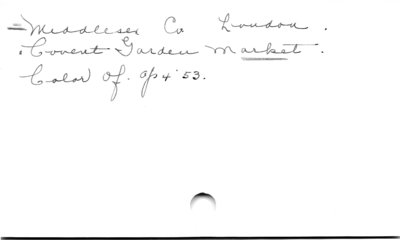 Middlesex Co London.
Covent Garden Market.
Color of. op 4 '53.